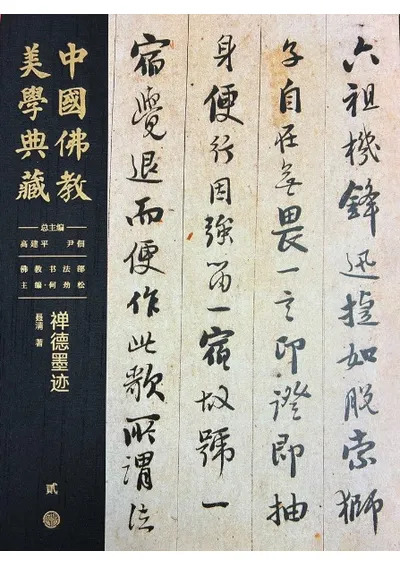 六祖機鋒迅捷如脫索獅
子自在無畏一言印證即抽
身便行因強留一宿故號一
宿覺退而便作此歌所謂法
中國佛教
美學典藏
总主编
高建平 尹佃
佛教书法部
主编·何劲松
禅德墨迹
聂清 著
贰